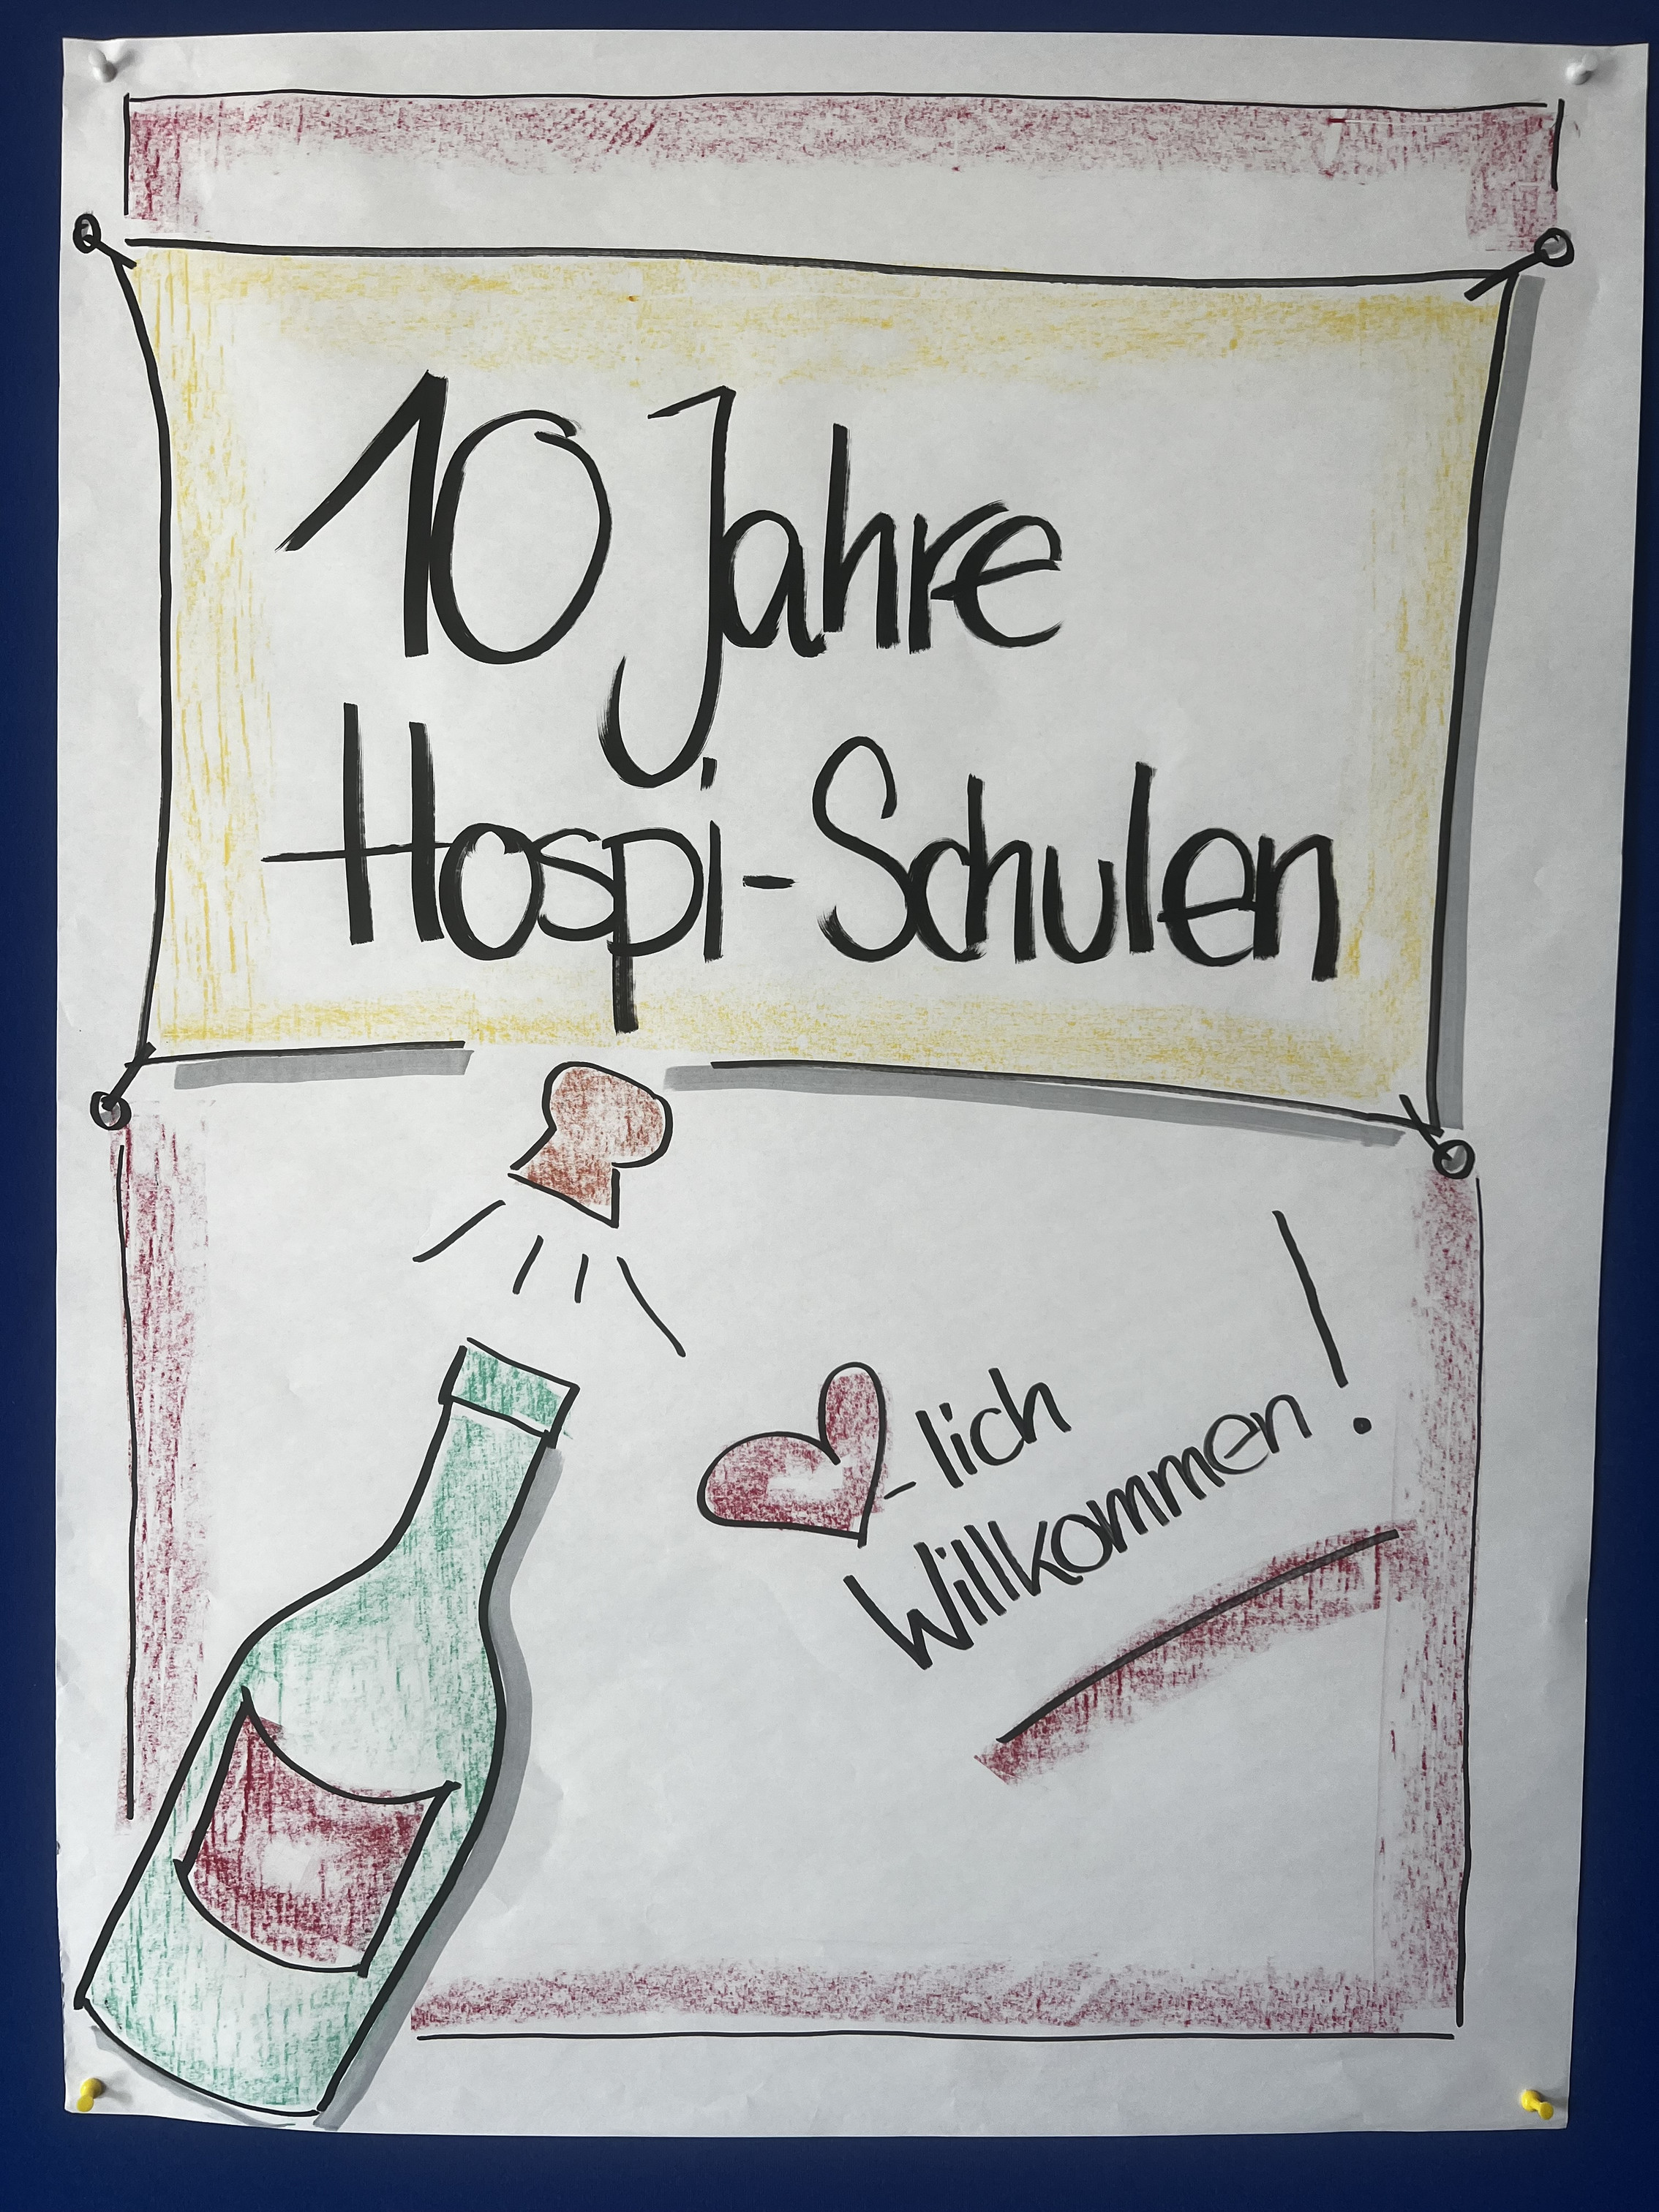 10 Jahre
Hospi-Schulen
-lich
Willkommen!